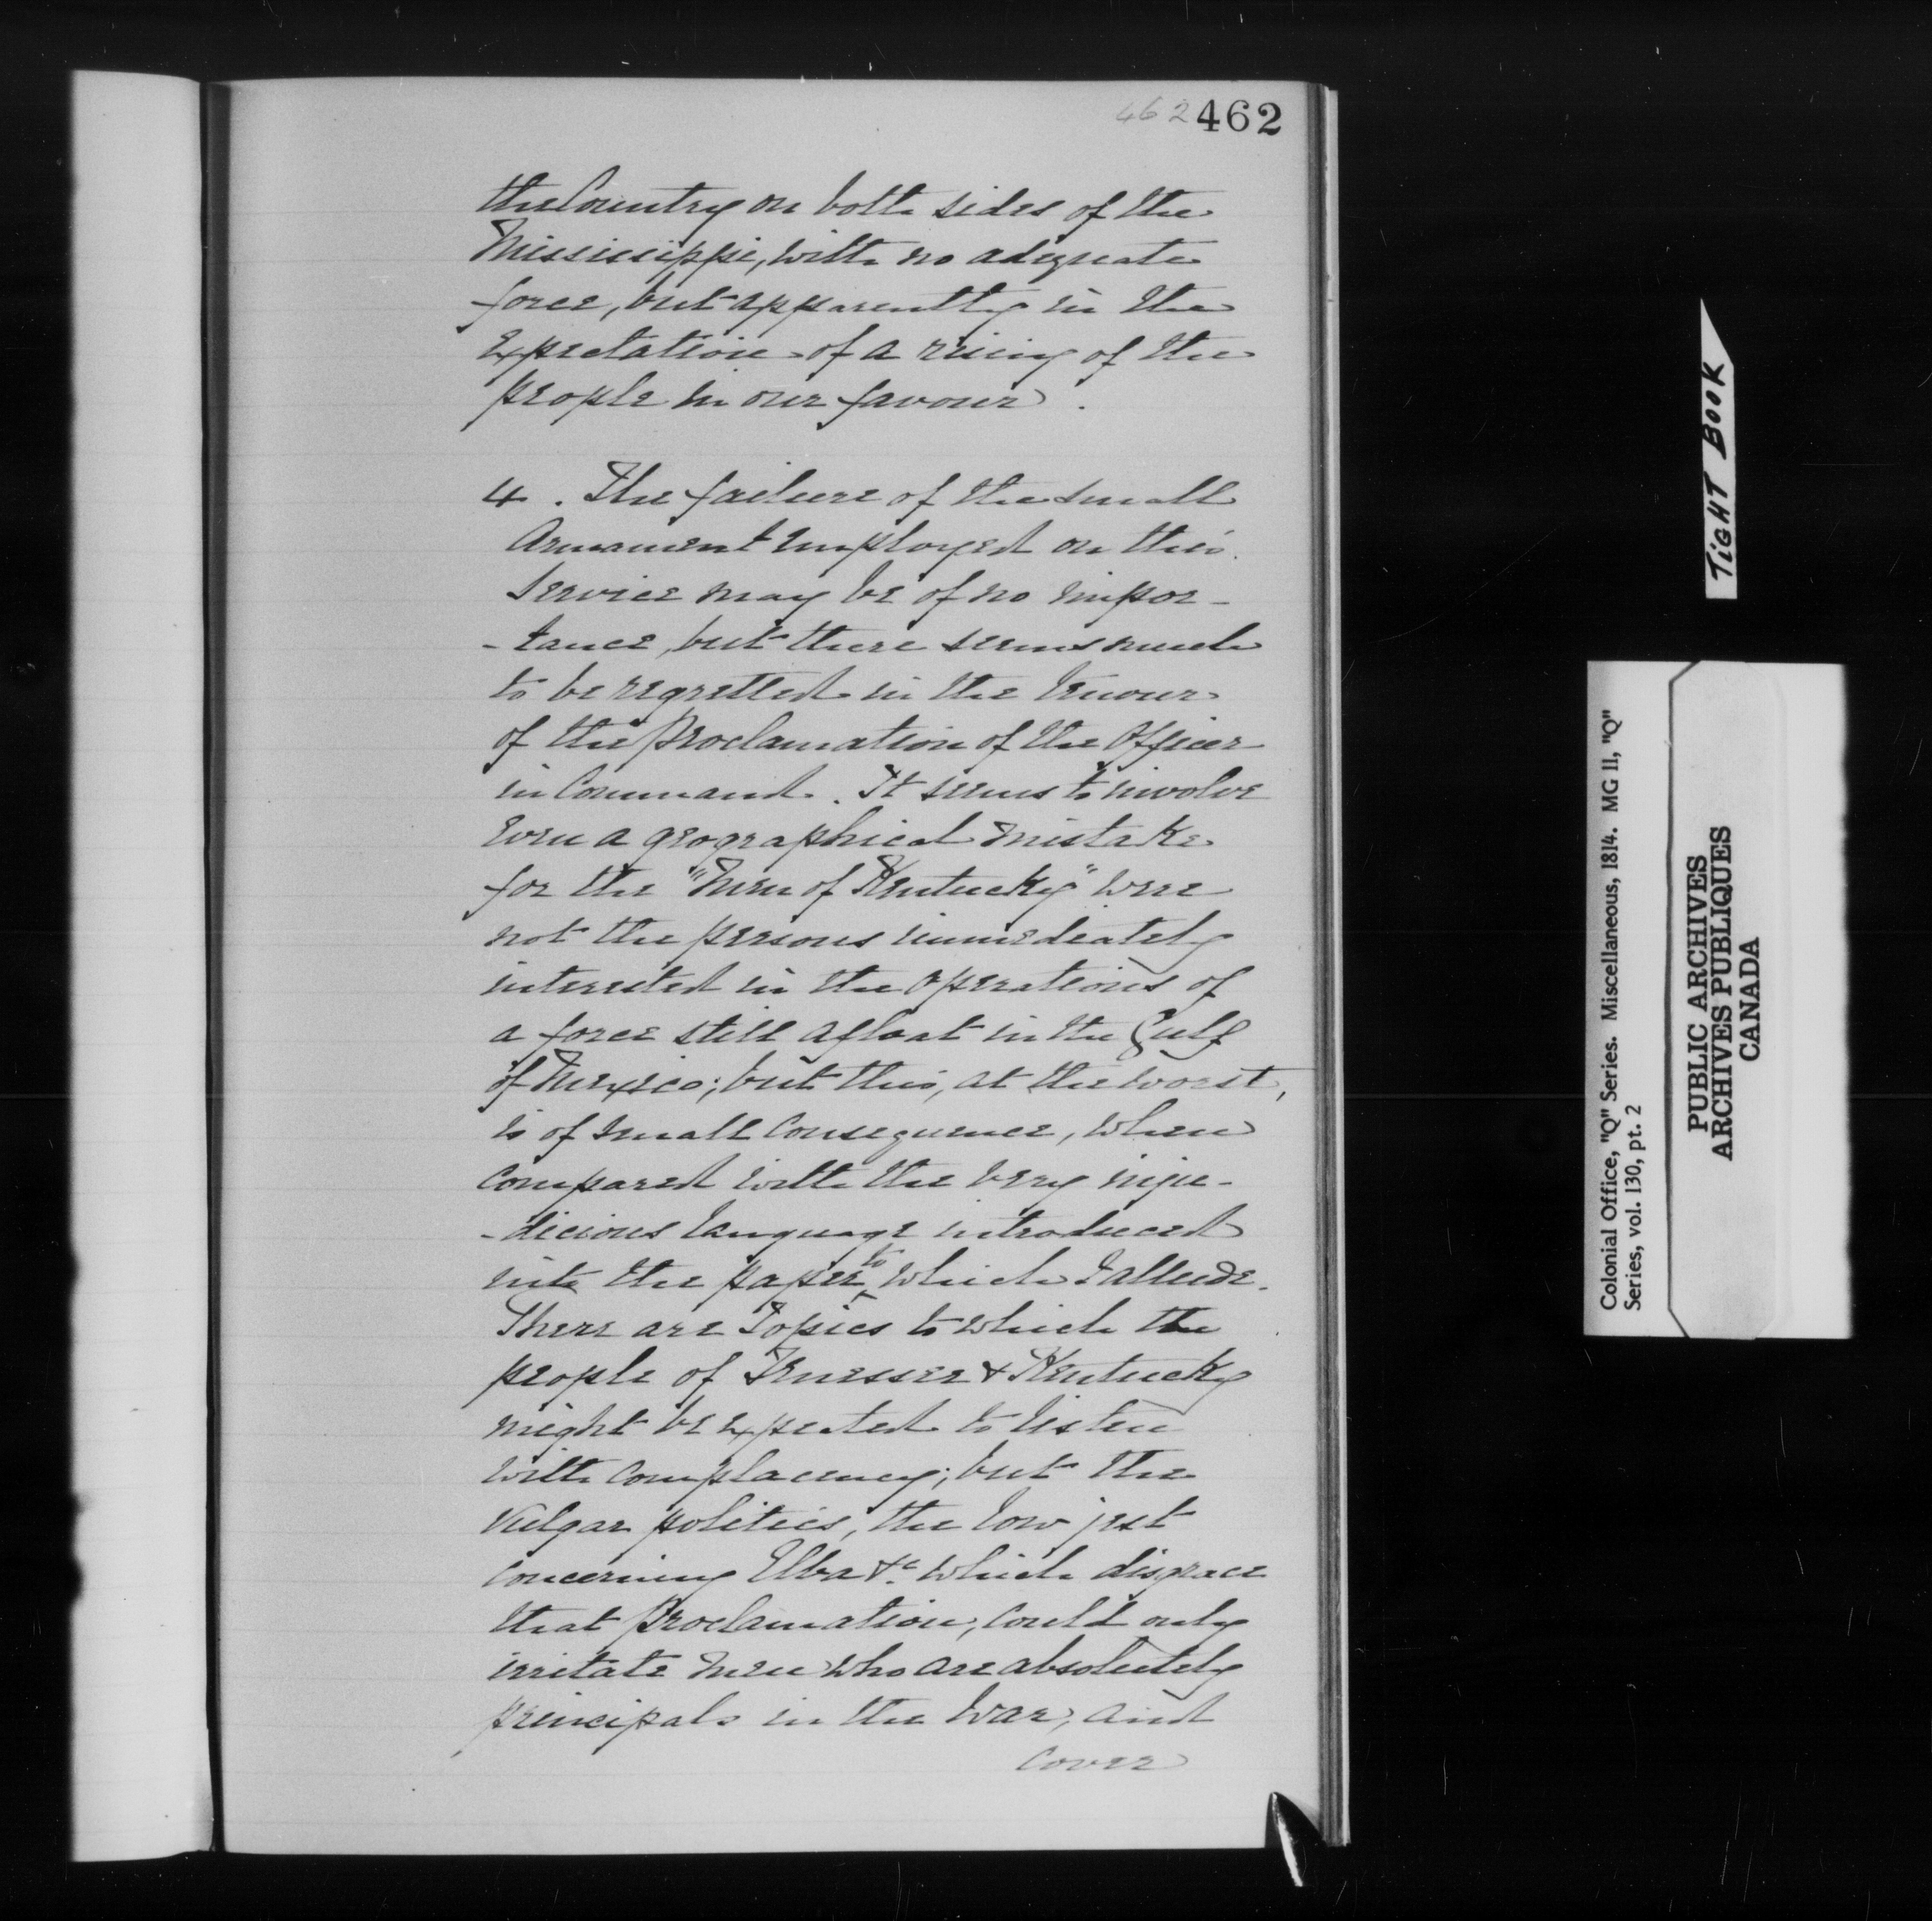 462 462
the Country on both sides of the
Mississippi, with no adequate
force, but apparently in the
Expectation of a rising of the
people in our favour.
4. The failure of the small
Armament employed on this
Service may be of no impor-
-tance, but there seems much
to be regretted in the tenour
of the Proclamation of the Officer
in Command. It seems to involve
even a geographical mistake
for the "Men of Kentucky" were
not the persons immediately
interested in the operations of
a force still afloat in the Gulf
of Mexico; but this, at the worst,
is of small consequence, when
compared with the very inju-
-dicious language introduced
into the paper to which I allude.
There are Topics to which the
people of Tenessee & Kentucky
might be expected to listen
with complacency; but the
vulgar politics, the low jest
concerning Elba &c. which disgrace
that Proclamation, could only
irritate men who are absolutely
principals in the War, and
cover
TIGHT BOOK
Colonial Office, "Q" Series. Miscellaneous, 1814. MG 11, "Q"
Series, vol. 130, pt. 2
PUBLIC ARCHIVES
ARCHIVES PUBLIQUES
CANADA